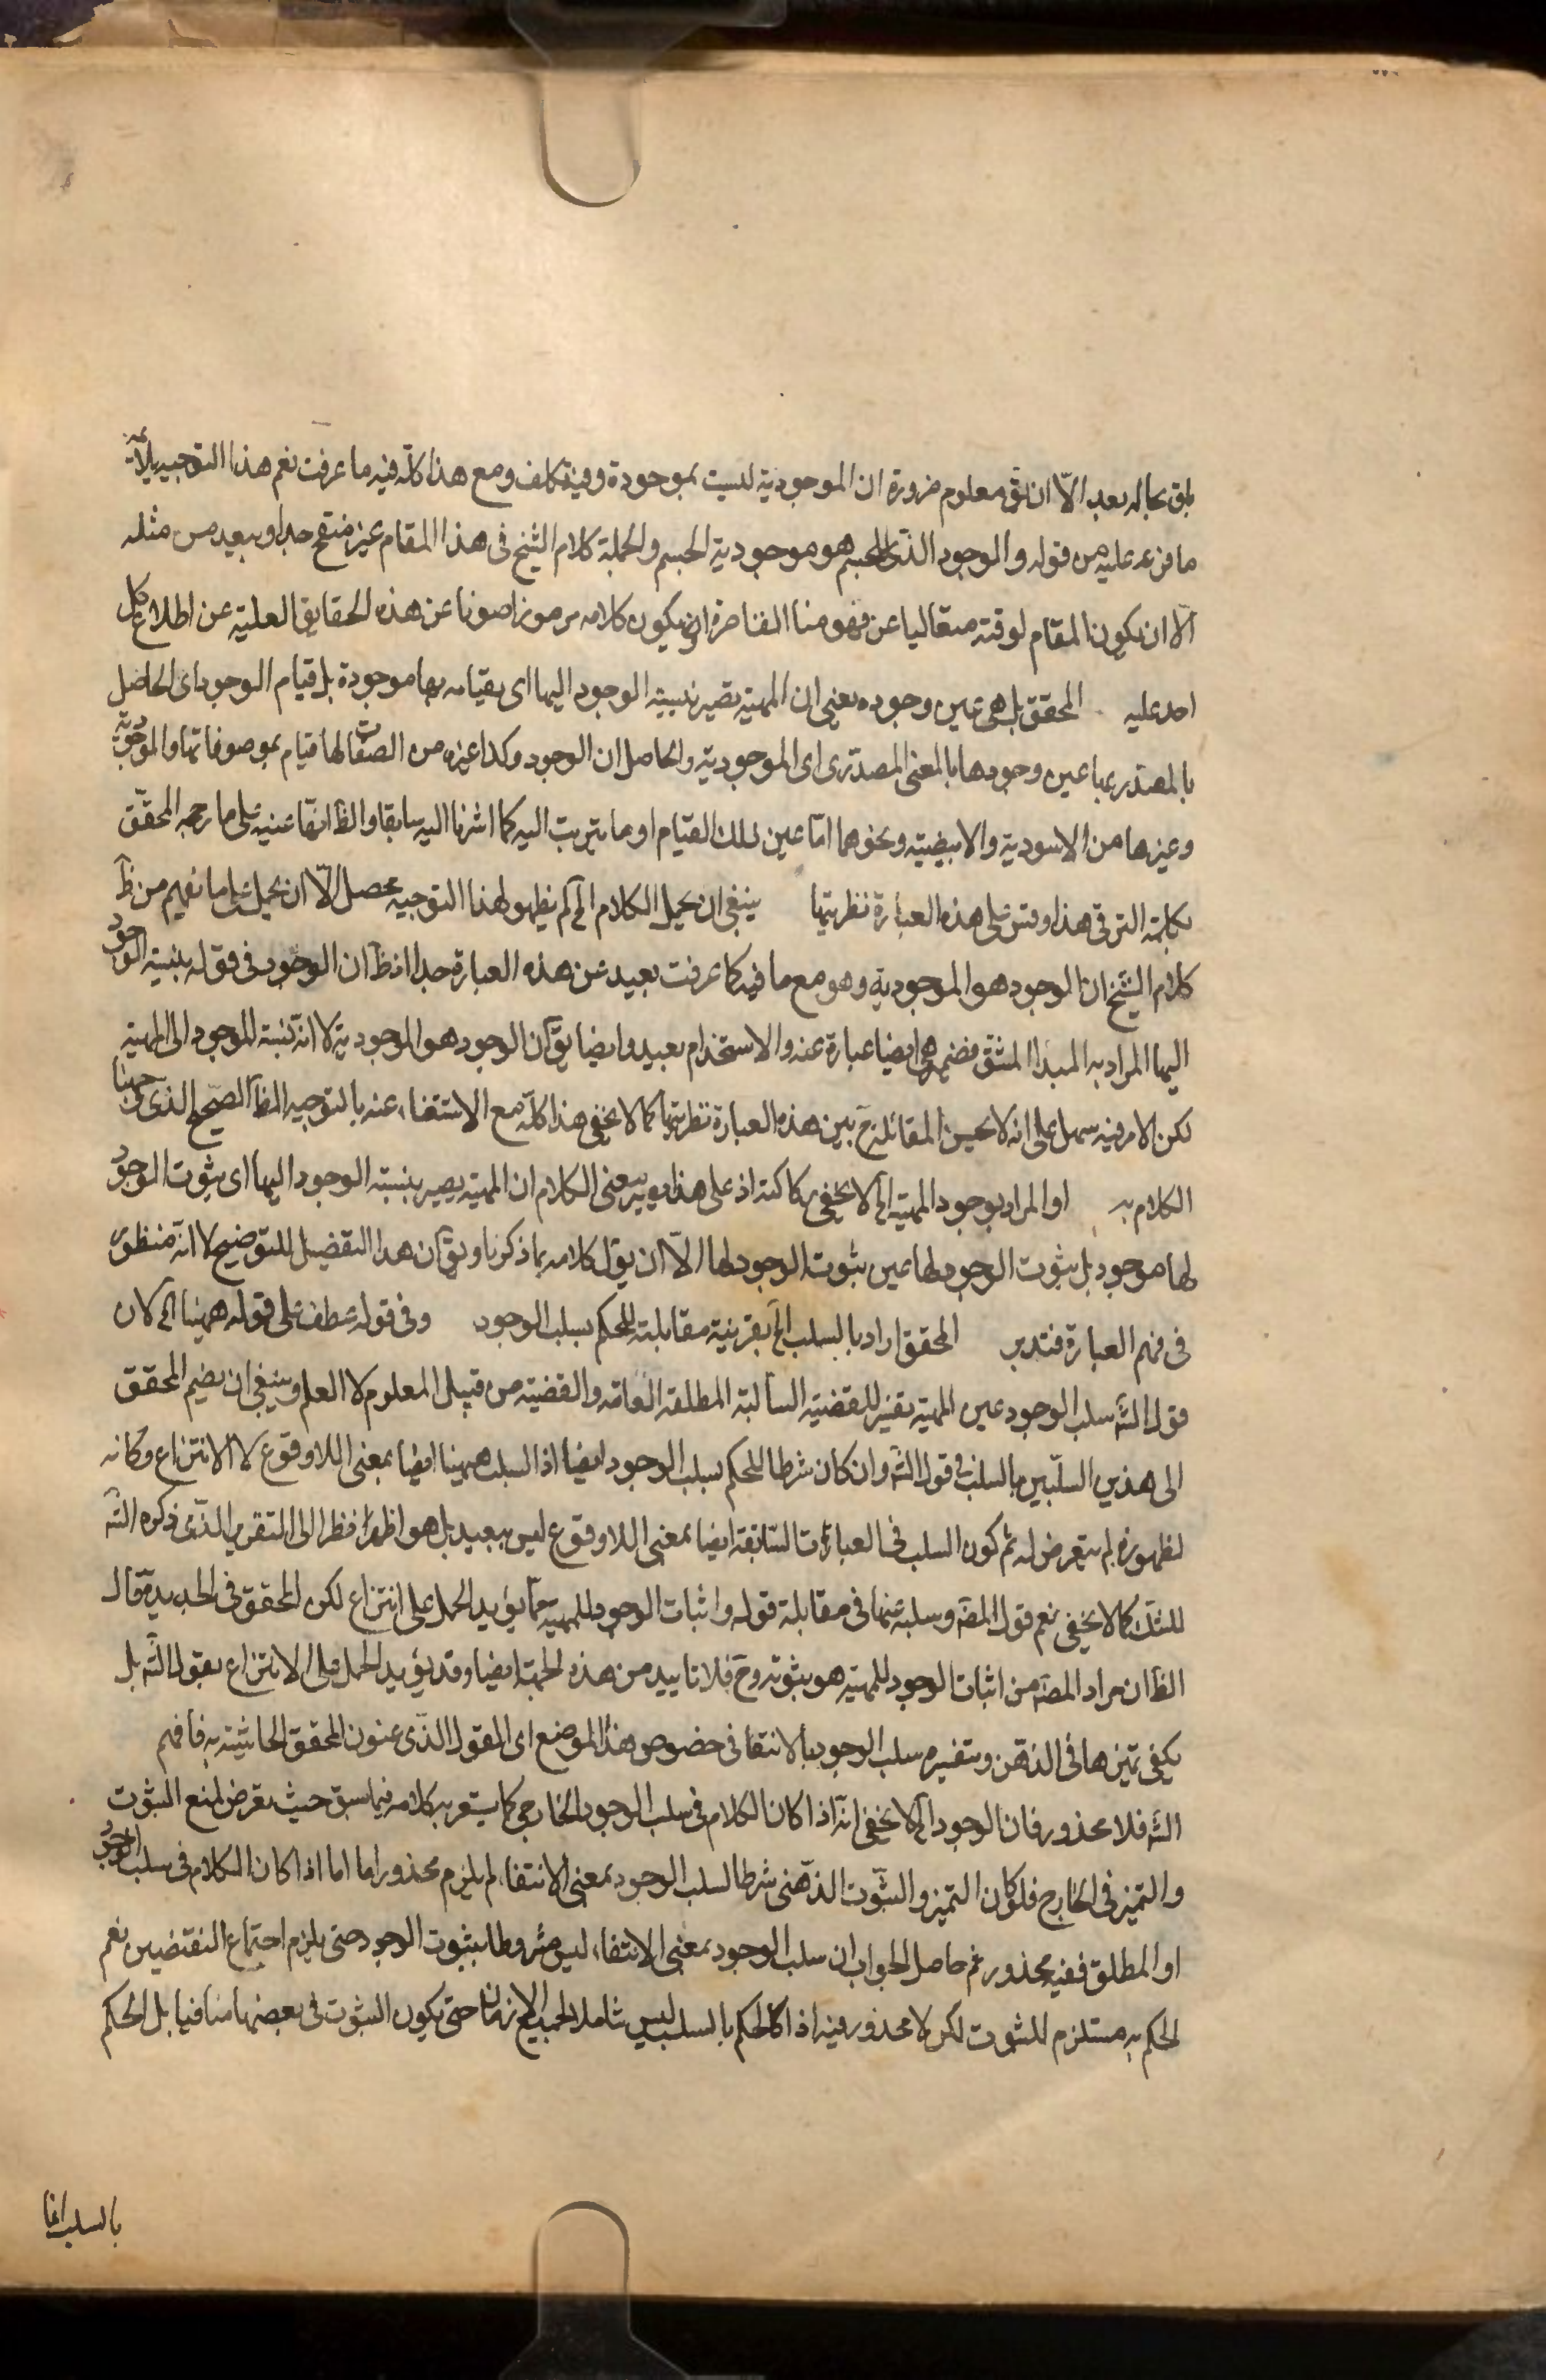 باق بحاله بعد الّا ان يق معلوم ضرورة ان الموجودية ليست بموجودة وفيه تكلف ومع هذا كله فيه ما عرفت نعم هذا التوجيه يلائمه
ما فرعه عليه من قوله والموجود الذى للجسم هو موجودية الجسم وبالجملة كلام الشيخ فى هذا المقام غير منقح جدا وبعيد من مثله
الّا ان يكون المقام لوقته متعاليا عن فهومنا القاصرة او يكون كلامه مرموزا صونا عن هذه الحقايق العلية عن اطلاع كل
احد عليه المحقق بل هى عين وجوده يعنى ان المهية تصير بنسبة الوجود اليها اى بقيامه بها موجودة بل قيام الوجود اى الحاصل
بالمصدر بها عين وجودها بالمعنى المصدرى اى الموجودية والحاصل ان الوجود وكذا غيره من الصفات لها قيام بموصوفاتها والموجودية
وغيرها من الاسودية والابيضية ونحوهما امّا عين ذلك القيام او ما يترتب اليه كما اشرنا اليه سابقا والظ ايضا عينيه على ما رجحه المحقق
بكلمة الترقى هذا وقس على هذه العبارة نظريتها ينبغى ان يحمل الكلام الخ لم يظهر لهذا التوجيه محصل الّا ان يحمل على ما يفهم من ظ
كلام الشيخ ان الوجود هو الموجودية وهو مع ما فيه كما عرفت بعيد عن هذه العبارة جدا اذ ظ ان الوجود فى قوله بنسبة الوجود
اليها المراد به المبدا المشتق فضمير هى ايضا عبارة عنه والاستخدام بعيد وايضا يق ان الوجود هو الموجودية لا انه نسبة الموجود الى المهية
لكن الامر فيه سهل على انه لا يحسن المقابلة ح بين هذه العبارة نظريتها كما لا يخفى هذا كله مع الاستغناء عنه بالتوجيه الظ الصحيح الذى وجهنا
الكلام به او المراد بوجود المهية الخ لا يخفى ركاكته اذ على هذا يصير معنى الكلام ان المهية يصير بنسبة الوجود اليها اى بثبوت الوجود
لها موجود بل بثبوت الوجود لها عين ثبوت الوجود لها الّا ان يول كلامه بما ذكرنا ويق ان هذا التفصيل للتوضيح لا انه منظور
فى فهم العبارة فتدبر المحقق اراد بالسلب الخ بقرينة مقابلته للحكم بسلب الوجود وفى قوله عطف على قوله ههنا الخ لان
قول الش سلب الوجود عين المهية تفسير للقضية السالبة المطلقة العامة والقضية من قبيل المعلوم لا العلم وينبغى ان يضم المحقق
الى هذين السلبين السلب فى قول الش وان كان شرطا للحكم بسلب الوجود ايضا اذ السلب ههنا ايضا بمعنى اللاوقوع لا الانتزاع وكانه
لظهوره لم يتعرض له ثم كون السلب فى العبارات السابقة ايضا بمعنى اللاوقوع ليس ببعيد بل هو اظهر نظرا الى التقرير الذى ذكره الش
للشك كما لا يخفى نعم قول المص وسلبه عنها فى مقابلة قوله واثبات الوجود للمهية مما يؤيد الحمل على انتزاع لكن المحقق فى الجديد قال
الظ ان مراد المص من اثبات الوجود للمهية هو ثبوته وح فلا تاييد من هذه الجهة ايضا وقد يؤيد الحمل على الانتزاع بقول الش بل
يكفى تميزها فى الذهن وبتفسيره سلب الوجود بالانتفا فى خصوص هذا الموضع اى القول الذى عنون المحقق الحاشية به فافهم
الش فلا محذور فان الوجود الخ لا يخفى انه اذا كان الكلام فى سلب الوجود الخارجى كما يشعر به كلامه فيما سبق حيث تعرض لمنع الثبوت
والتميز فى الخارج فلو كان التميز والثبوت الذهنى شرطا لسلب الوجود بمعنى الانتفاء لم يلزم محذور اما اما اذا كان الكلام فى سلب الوجود
او المطلق ففيه محذور ثم حاصل الجواب ان سلب الوجود بمعنى الانتفاء ليس مشروطا بثبوت الوجود حتى يلزم اجتماع النقيضين نعم
الحكم به مستلزم للثبوت لكن لا محذور فيه اذا كان الحكم بالسلب ليس شاملا لجميع الازمان حتى يكون الثبوت فى بعضها منافيا بل الحكم
بالسلب انما